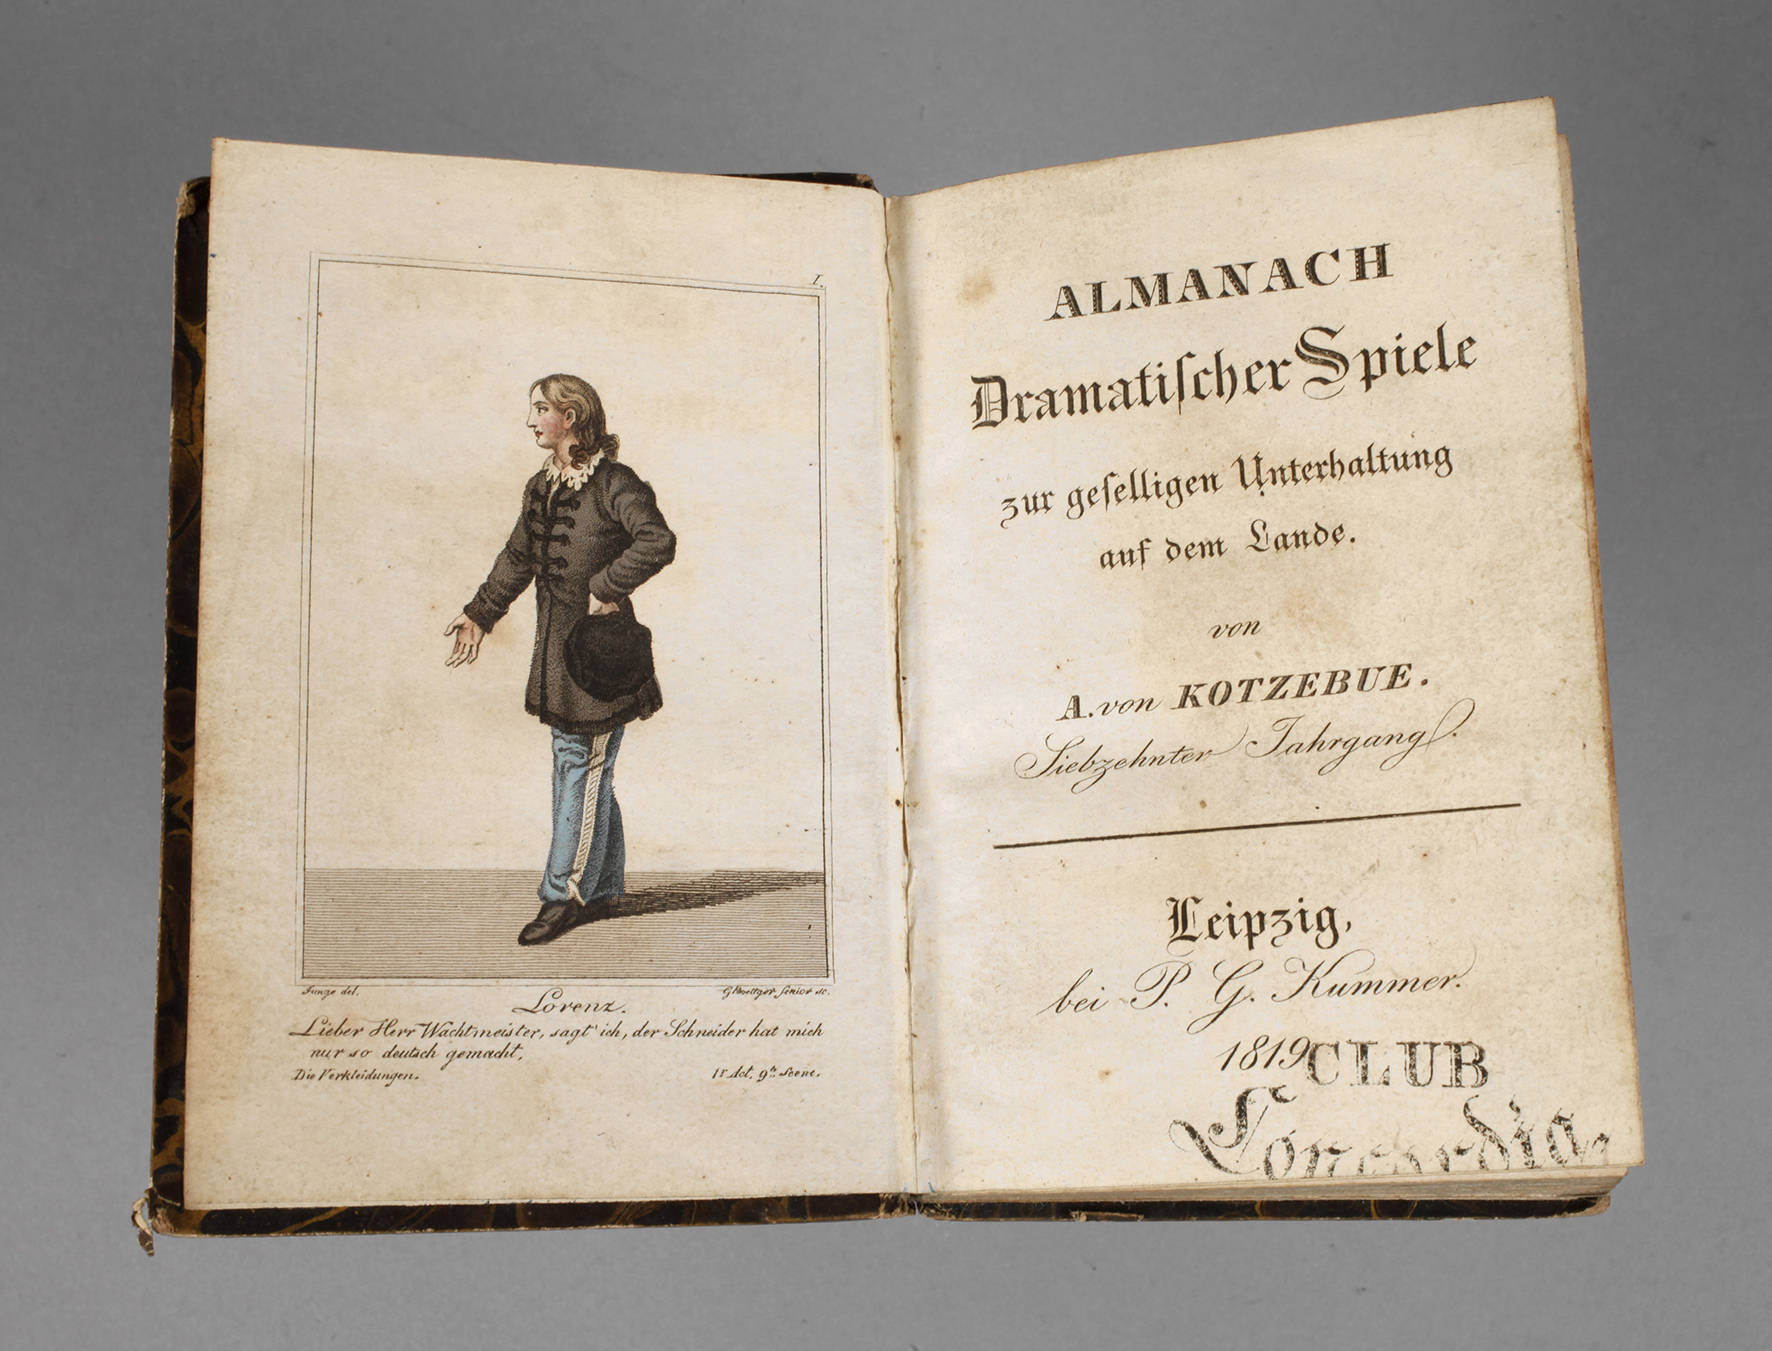 I.
Junge del.
G Boettger senior sc.
Lorenz.
Lieber Herr Wachtmeister, sagt' ich, der Schneider hat mich
nur so deutsch gemacht.
Die Verkleidungen.
1r Act. 9te Scene.
ALMANACH
Dramatiſcher Spiele
zur geſelligen Unterhaltung
auf dem Lande.
von
A. von KOTZEBUE.
Siebzehnter Jahrgang.
Leipzig,
bei P. G. Kummer.
1819
CLUB
Concordia